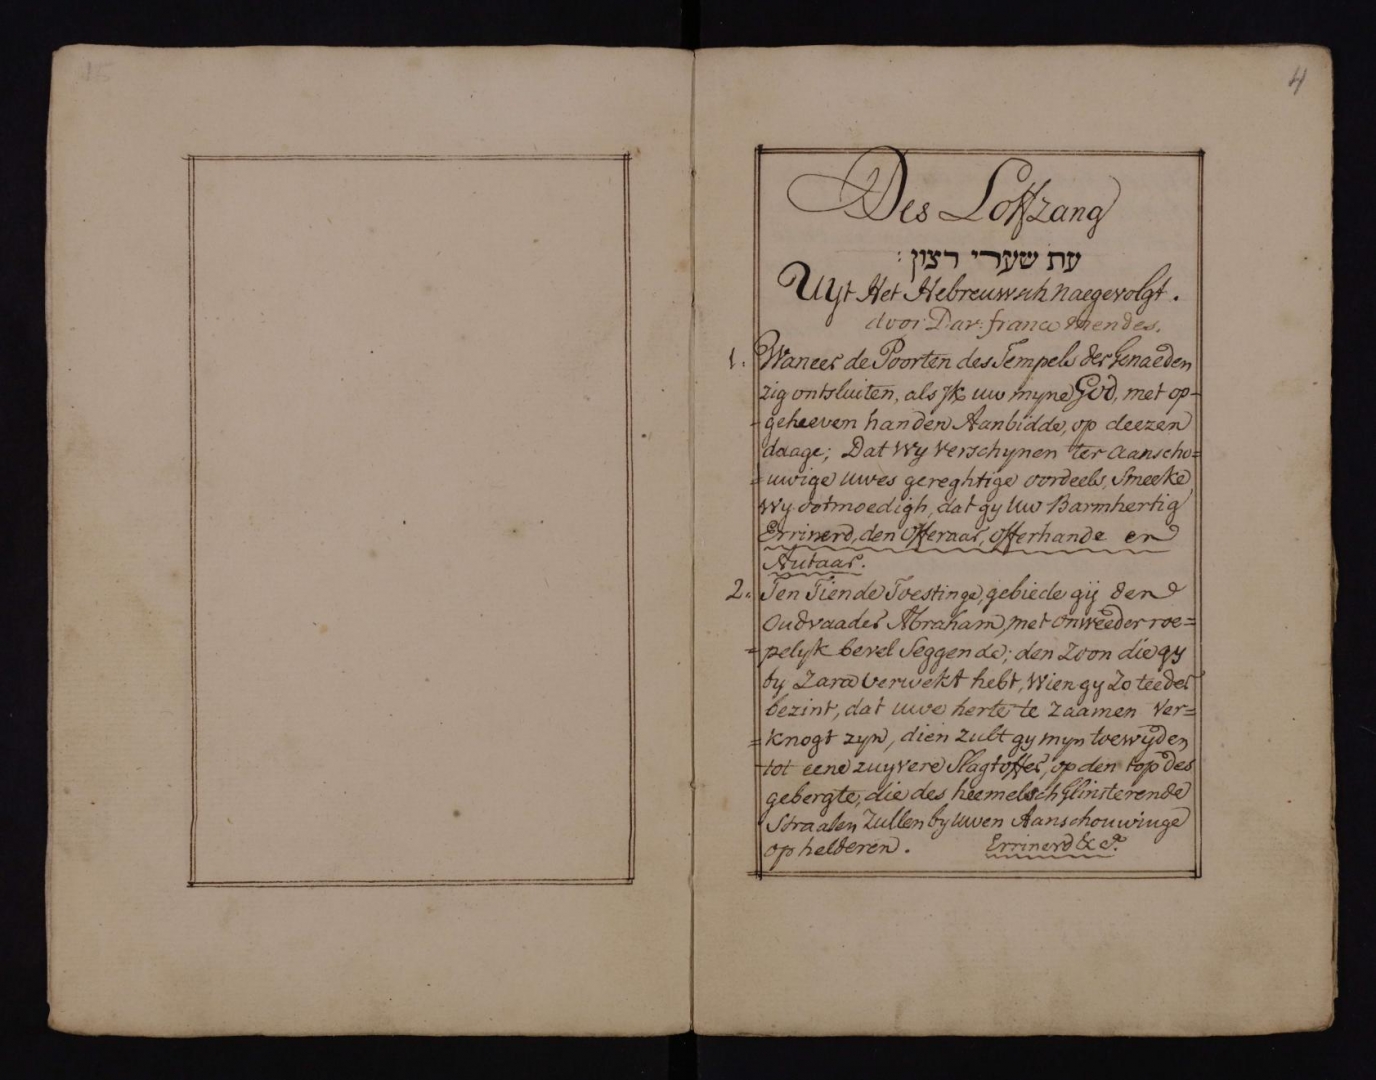 4
Des Loffzang
עת שערי רצון :
Uyt Het Hebreuwsch naegevolgt.
door Dav: franco mendes.
1. Waneer de Poorten des Tempels der Genaeden
zig ontsluiten, als Jk uw myne God, met op-
-geheeven handen Aanbidde, op deezen
daage; Dat wy verschynen ter aanscho=
=uwige uwes gereghtige oordeels, Smeeke
wy ootmoedigh, dat gy uw Barmhertig
Errinerd, den offeraar, offerhande en
Autaar.
2. Ten Tiende Toestinge, gebiede gij den
Oudvaader Abraham, met onweederroe=
=pelyk bevel Seggende; den Zoon die gy
by Zara verwekt hebt, Wien gy Zo teeder
bezint, dat uwe herte te zaamen Ver=
=knogt zyn, dien zult gy myn toewyden
tot eene zuyvere Slagtoffer, op den top des
gebergte, die des heemelsch Glinsterende
Straalen Zullen by uwen Aanschouwinge
op helderen. Errinerd &c.